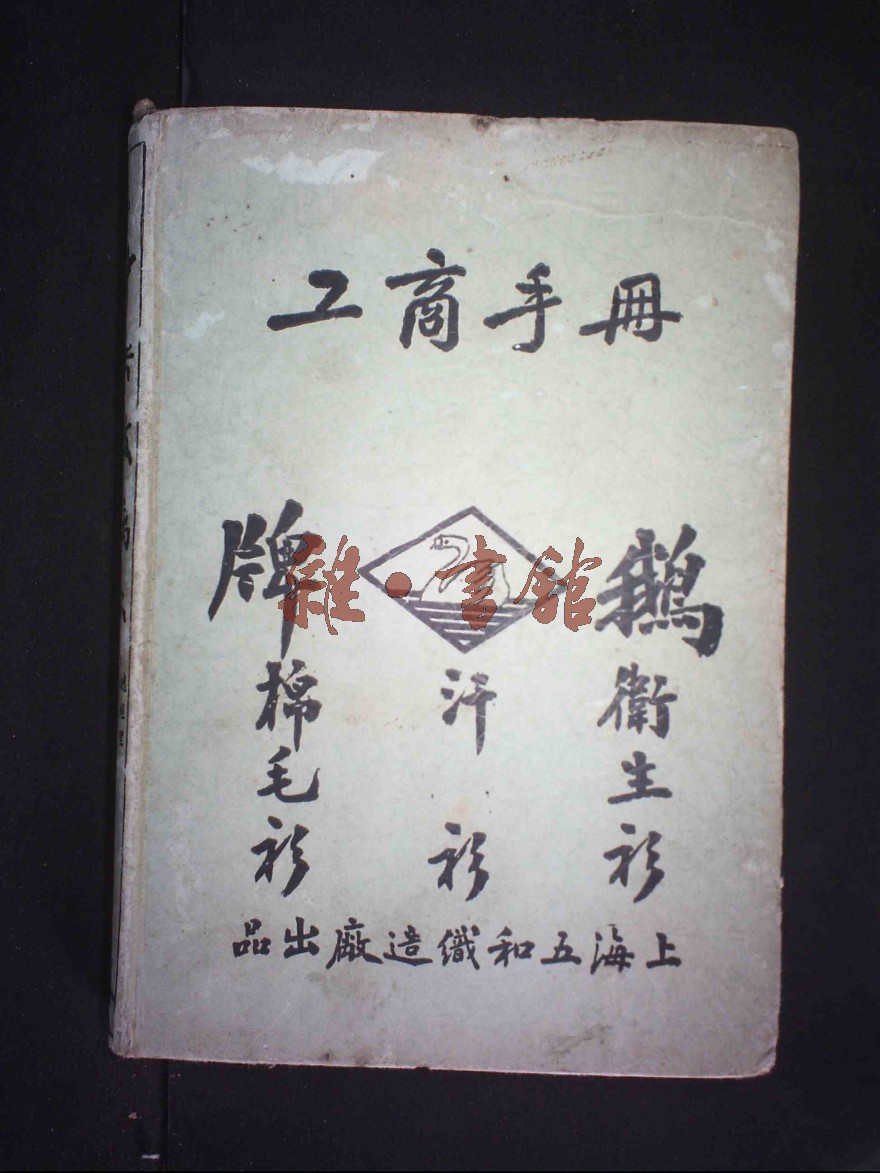 工商手冊
鵝牌
衛生衫
汗衫
棉毛衫
上海五和織造廠出品
雜·書館